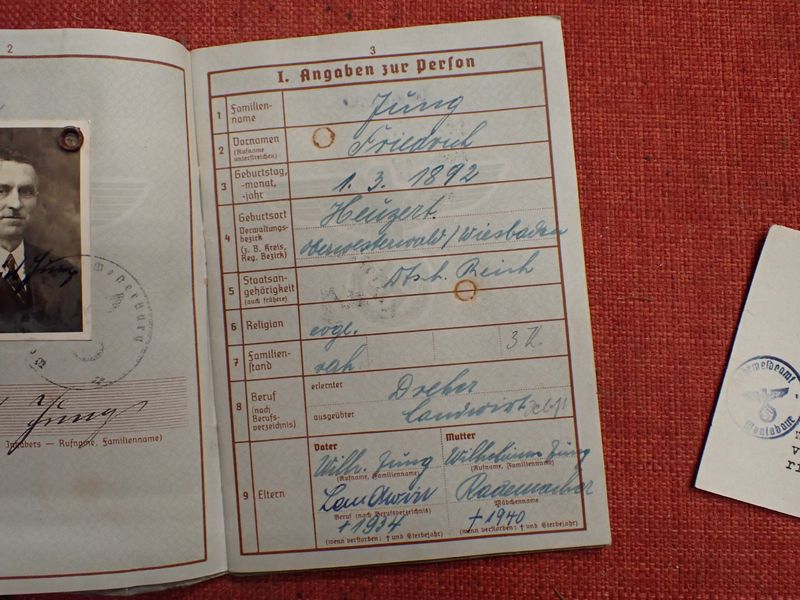 2
Jung
Jung
Inhabers — Rufname, Familienname)
3
I. Angaben zur Person
1 Familien-
name
Jung
2 Vornamen
(Rufname
unterstreichen)
Friedrich
3 Geburtstag,
-monat,
-jahr
1. 3. 1892
4 Geburtsort
Verwaltungs-
bezirk
(z. B. Kreis,
Reg. Bezirk)
Heuzert
Oberwesterwald/Wiesbaden
5 Staatsan-
gehörigkeit
(auch frühere)
Dtsch. Reich
6 Religion
evgl.
7 Familien-
stand
vrh.
3 K.
8 Beruf
(nach
Berufs-
verzeichnis)
erlernter
Dreher
ausgeübter
Landwirt
9 Eltern
Vater
Wilh. Jung
(Rufname, Familienname)
Landwirt
Beruf (nach Berufsverzeichnis)
† 1934
(wenn verstorben: † und Sterbejahr)
Mutter
Wilhelmine Jung
(Rufname, Familienname)
Rademacher
Mädchenname
† 1940
(wenn verstorben: † und Sterbejahr)
Montabaur